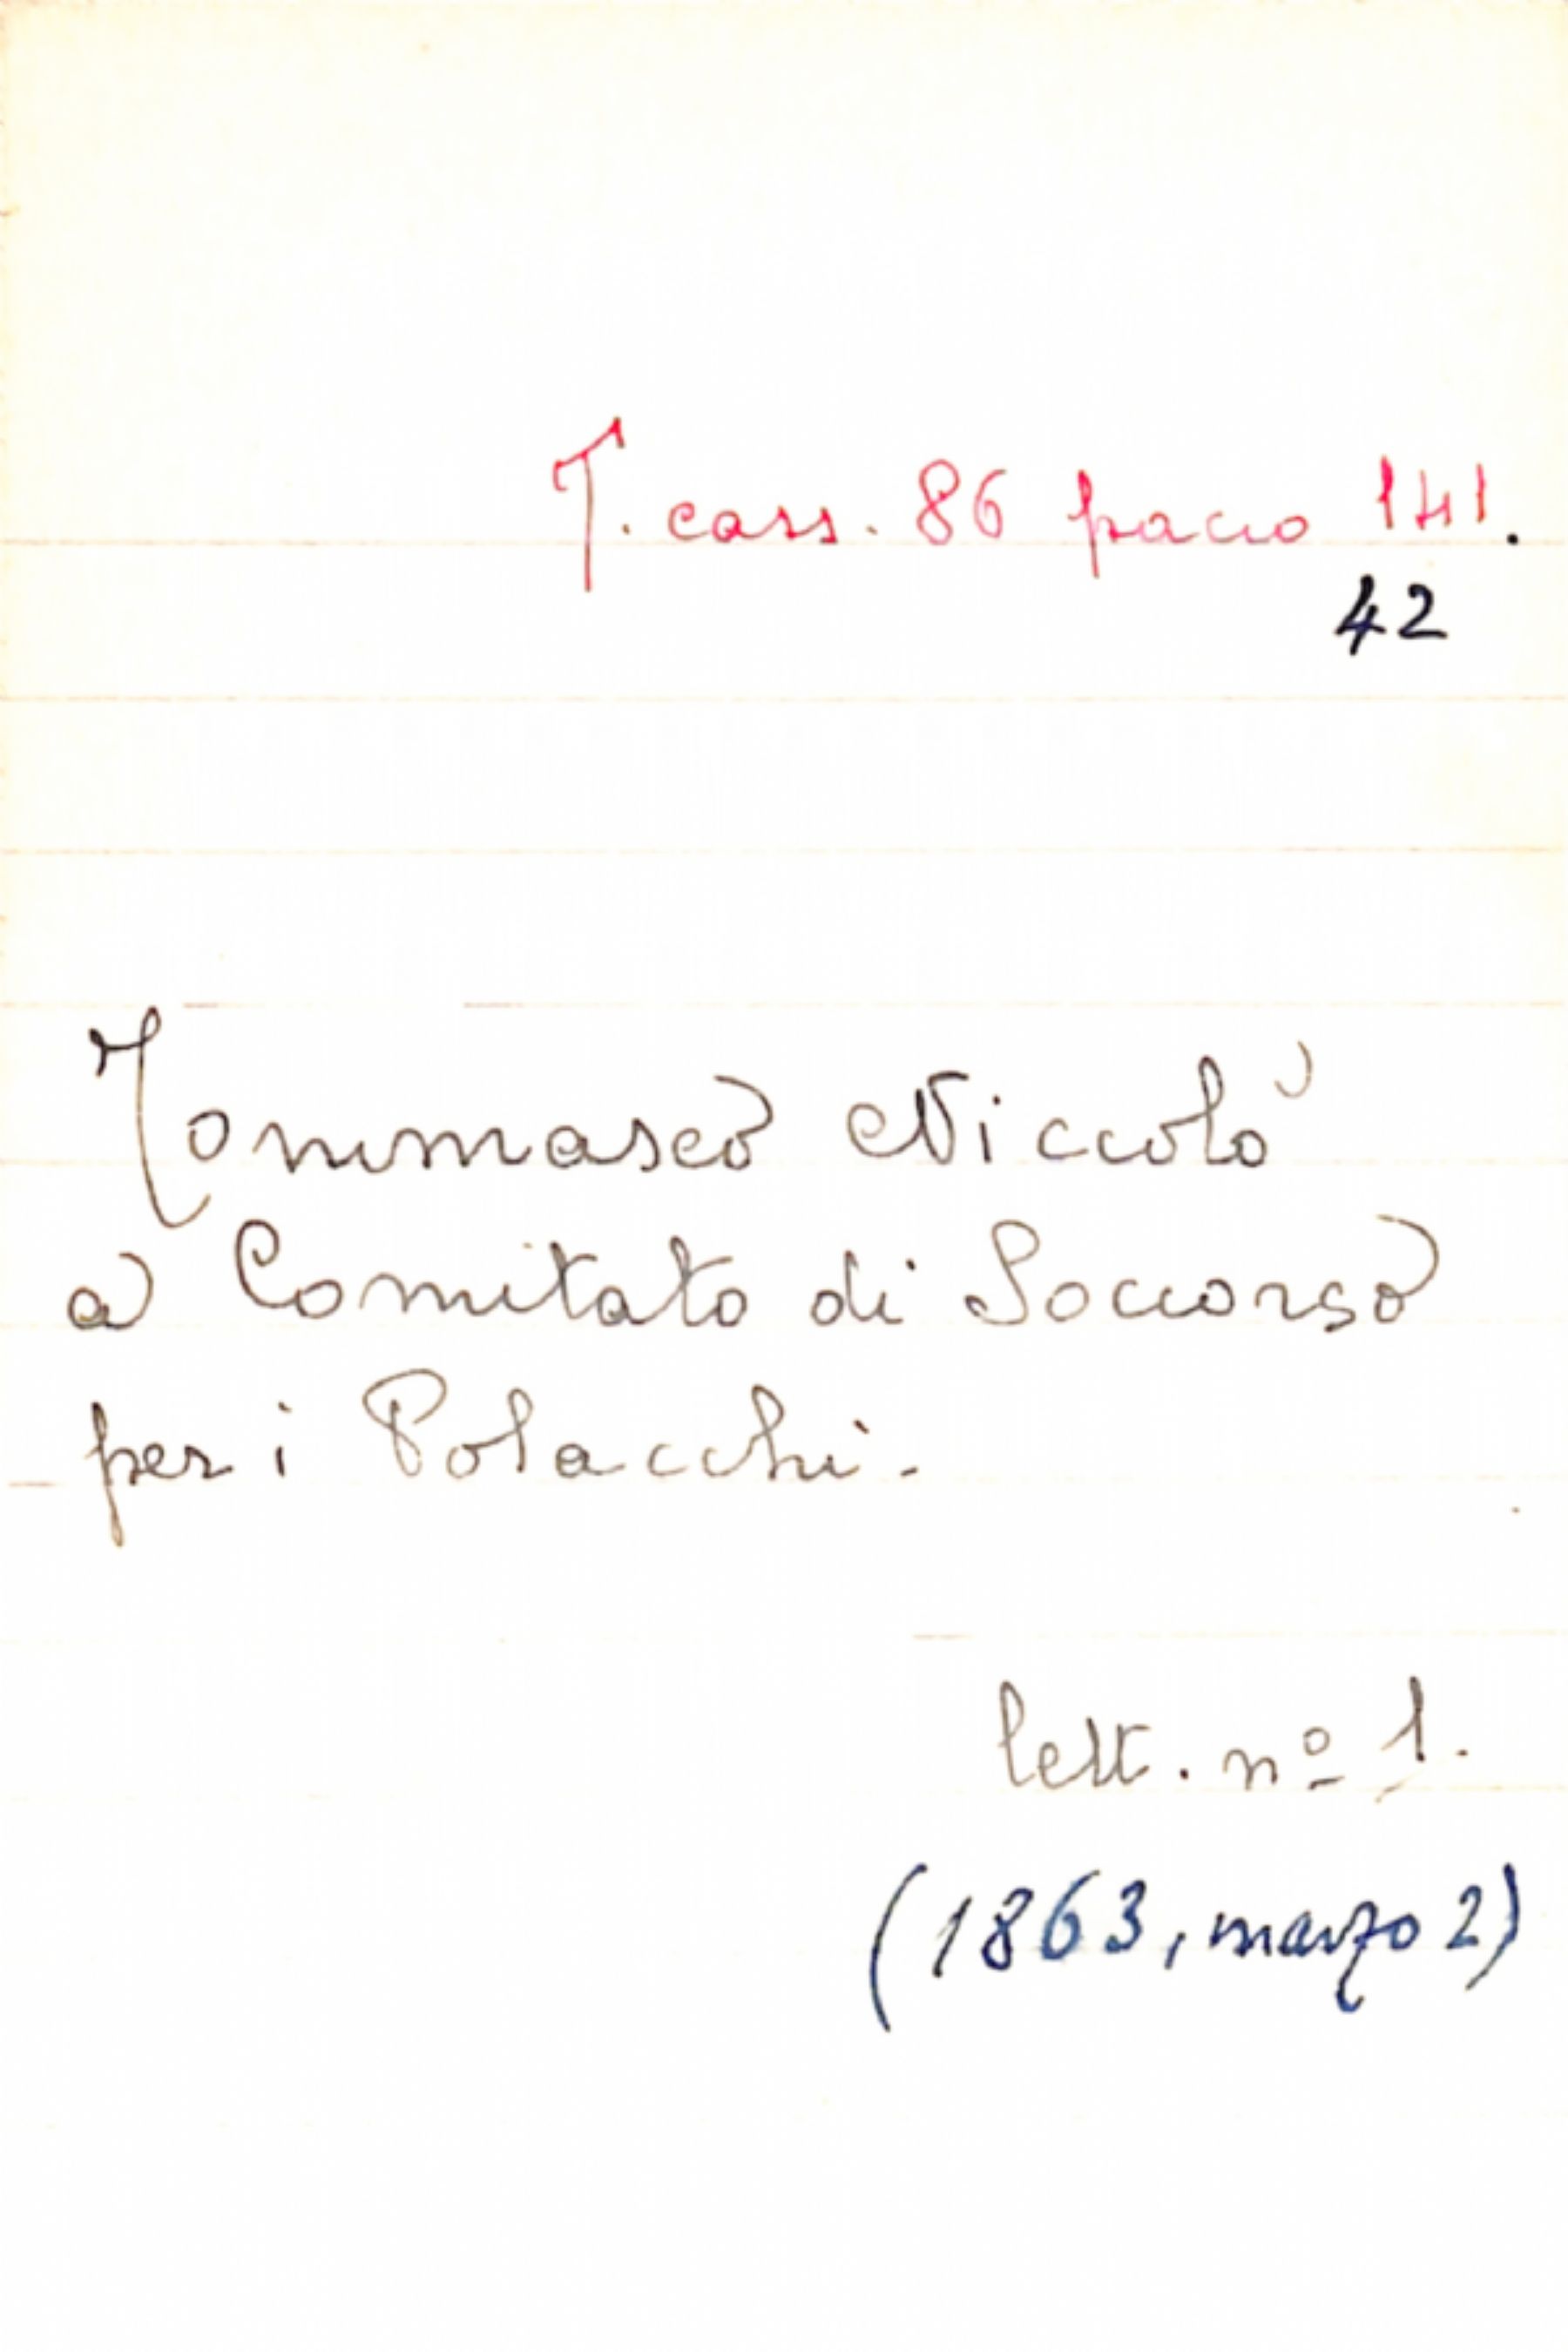 T. cass. 86 pacco 141.
42
Tommaseo Niccolò
a Comitato di Soccorso
per i Polacchi.
lett. nº 1.
(1863, marzo 2)